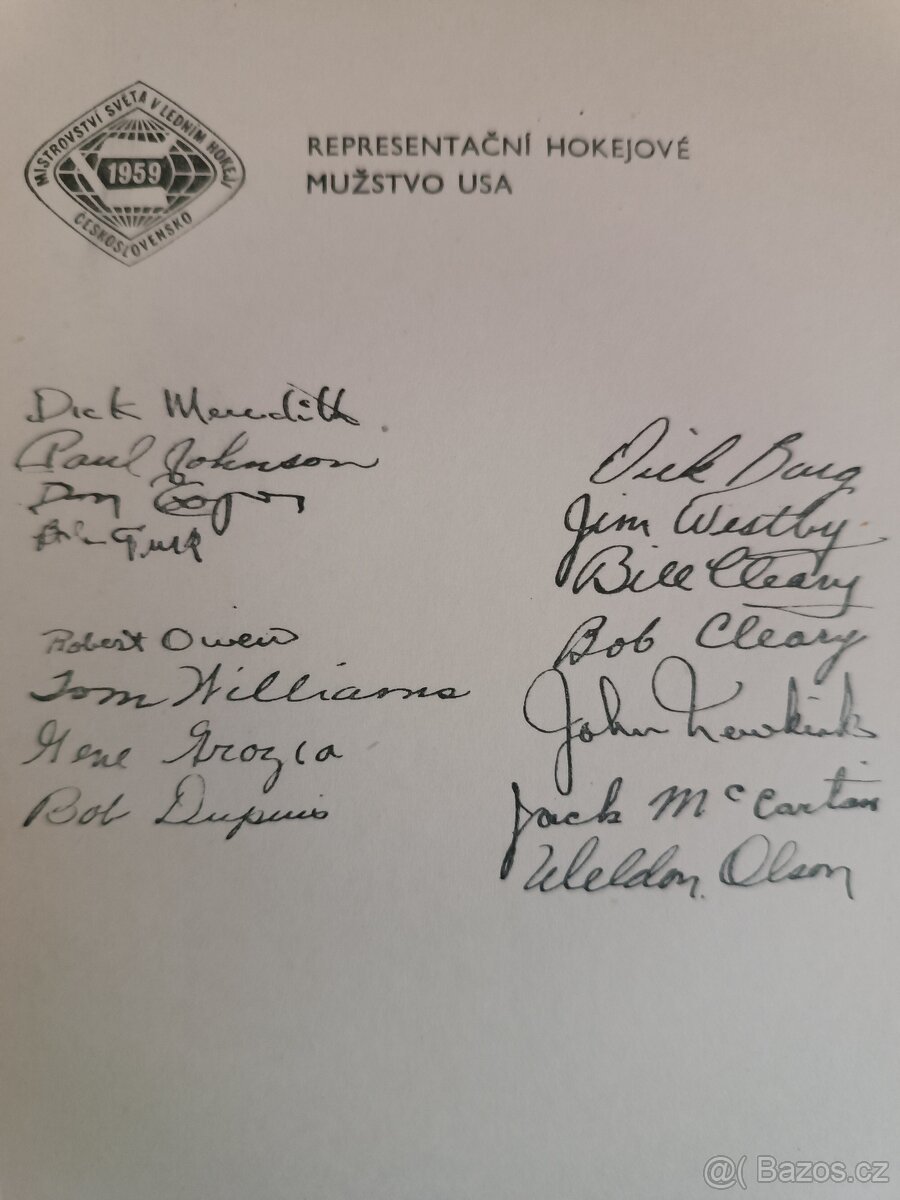 MISTROVSTVÍ SVĚTA V LEDNÍM HOKEJI
1959
ČESKOSLOVENSKO
REPRESENTAČNÍ HOKEJOVÉ
MUŽSTVO USA
Dick Meredith
Paul Johnson
Robert Owen
Tom Williams
Gene Grazia
Bob Dupuis
Dick Burg
Jim Westby
Bill Cleary
Bob Cleary
John Newkirk
Jack McCartan
Weldon Olson
@( Bazos.cz